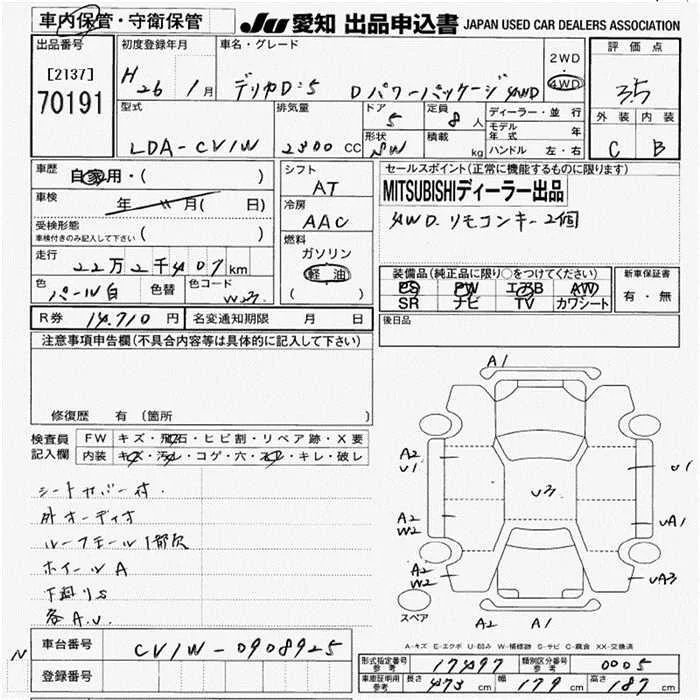 車内保管・守衛保管
JU 愛知 出品申込書 JAPAN USED CAR DEALERS ASSOCIATION
出品番号
[2137]
70191
初度登録年月
H 26 1月
車名・グレード
デリカD:5 Dパワーパッケージ 4WD
2WD
・
4WD
評価点
3.5
外装 内装
C B
型式
LDA-CV1W
排気量
2300 CC
ドア
5
定員
8人
形状
SW
積載
kg
ディーラー・並行
モデル年式 年
ハンドル 左・右
車歴
自家用・( )
車検
年 月( 日)
受検形態
車検付きのみ記入して下さい ( )
走行
22万2千407km
色
パール白
色替
色コード
W37
シフト
AT
冷房
AAC
燃料
ガソリン
軽油
( )
セールスポイント(正常に機能するものに限ります)
MITSUBISHIディーラー出品
4WD. リモコンキー2個
装備品(純正品に限り○をつけてください)
PS PW エアB AW
SR ナビ TV カワシート
新車保証書
有・無
R券 14,710円 名変通知期限 月 日
後日品
注意事項申告欄(不具合内容等は具体的に記入して下さい)
修復歴 有(箇所 )
検査員
記入欄
FW キズ・飛石・ヒビ割・リペア跡・X要
内装 キズ・汚れ・コゲ・穴・スレ・キレ・破レ
シートカバー付.
外オーディオ
ルーフモール1部欠
ホイールA
下廻りS
各A.U.
A1
A2
U1
U1
U3
A2
W2
UA1
A2
W2
UA3
スペア
A2 A1
A-キズ E-エクボ U-凹み W-補修跡 S-サビ C-腐食 XX-交換済
N
車台番号
CV1W-0908925
登録番号
形式指定番号
参考
17497
類別区分番号
参考
0005
車庫証明用
参考
長さ 473cm 幅 179cm 高さ 187cm